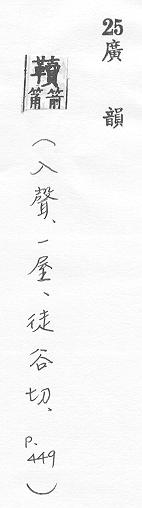 25 廣韻
韇箭筩
（入聲、一屋、徒谷切、p.449）